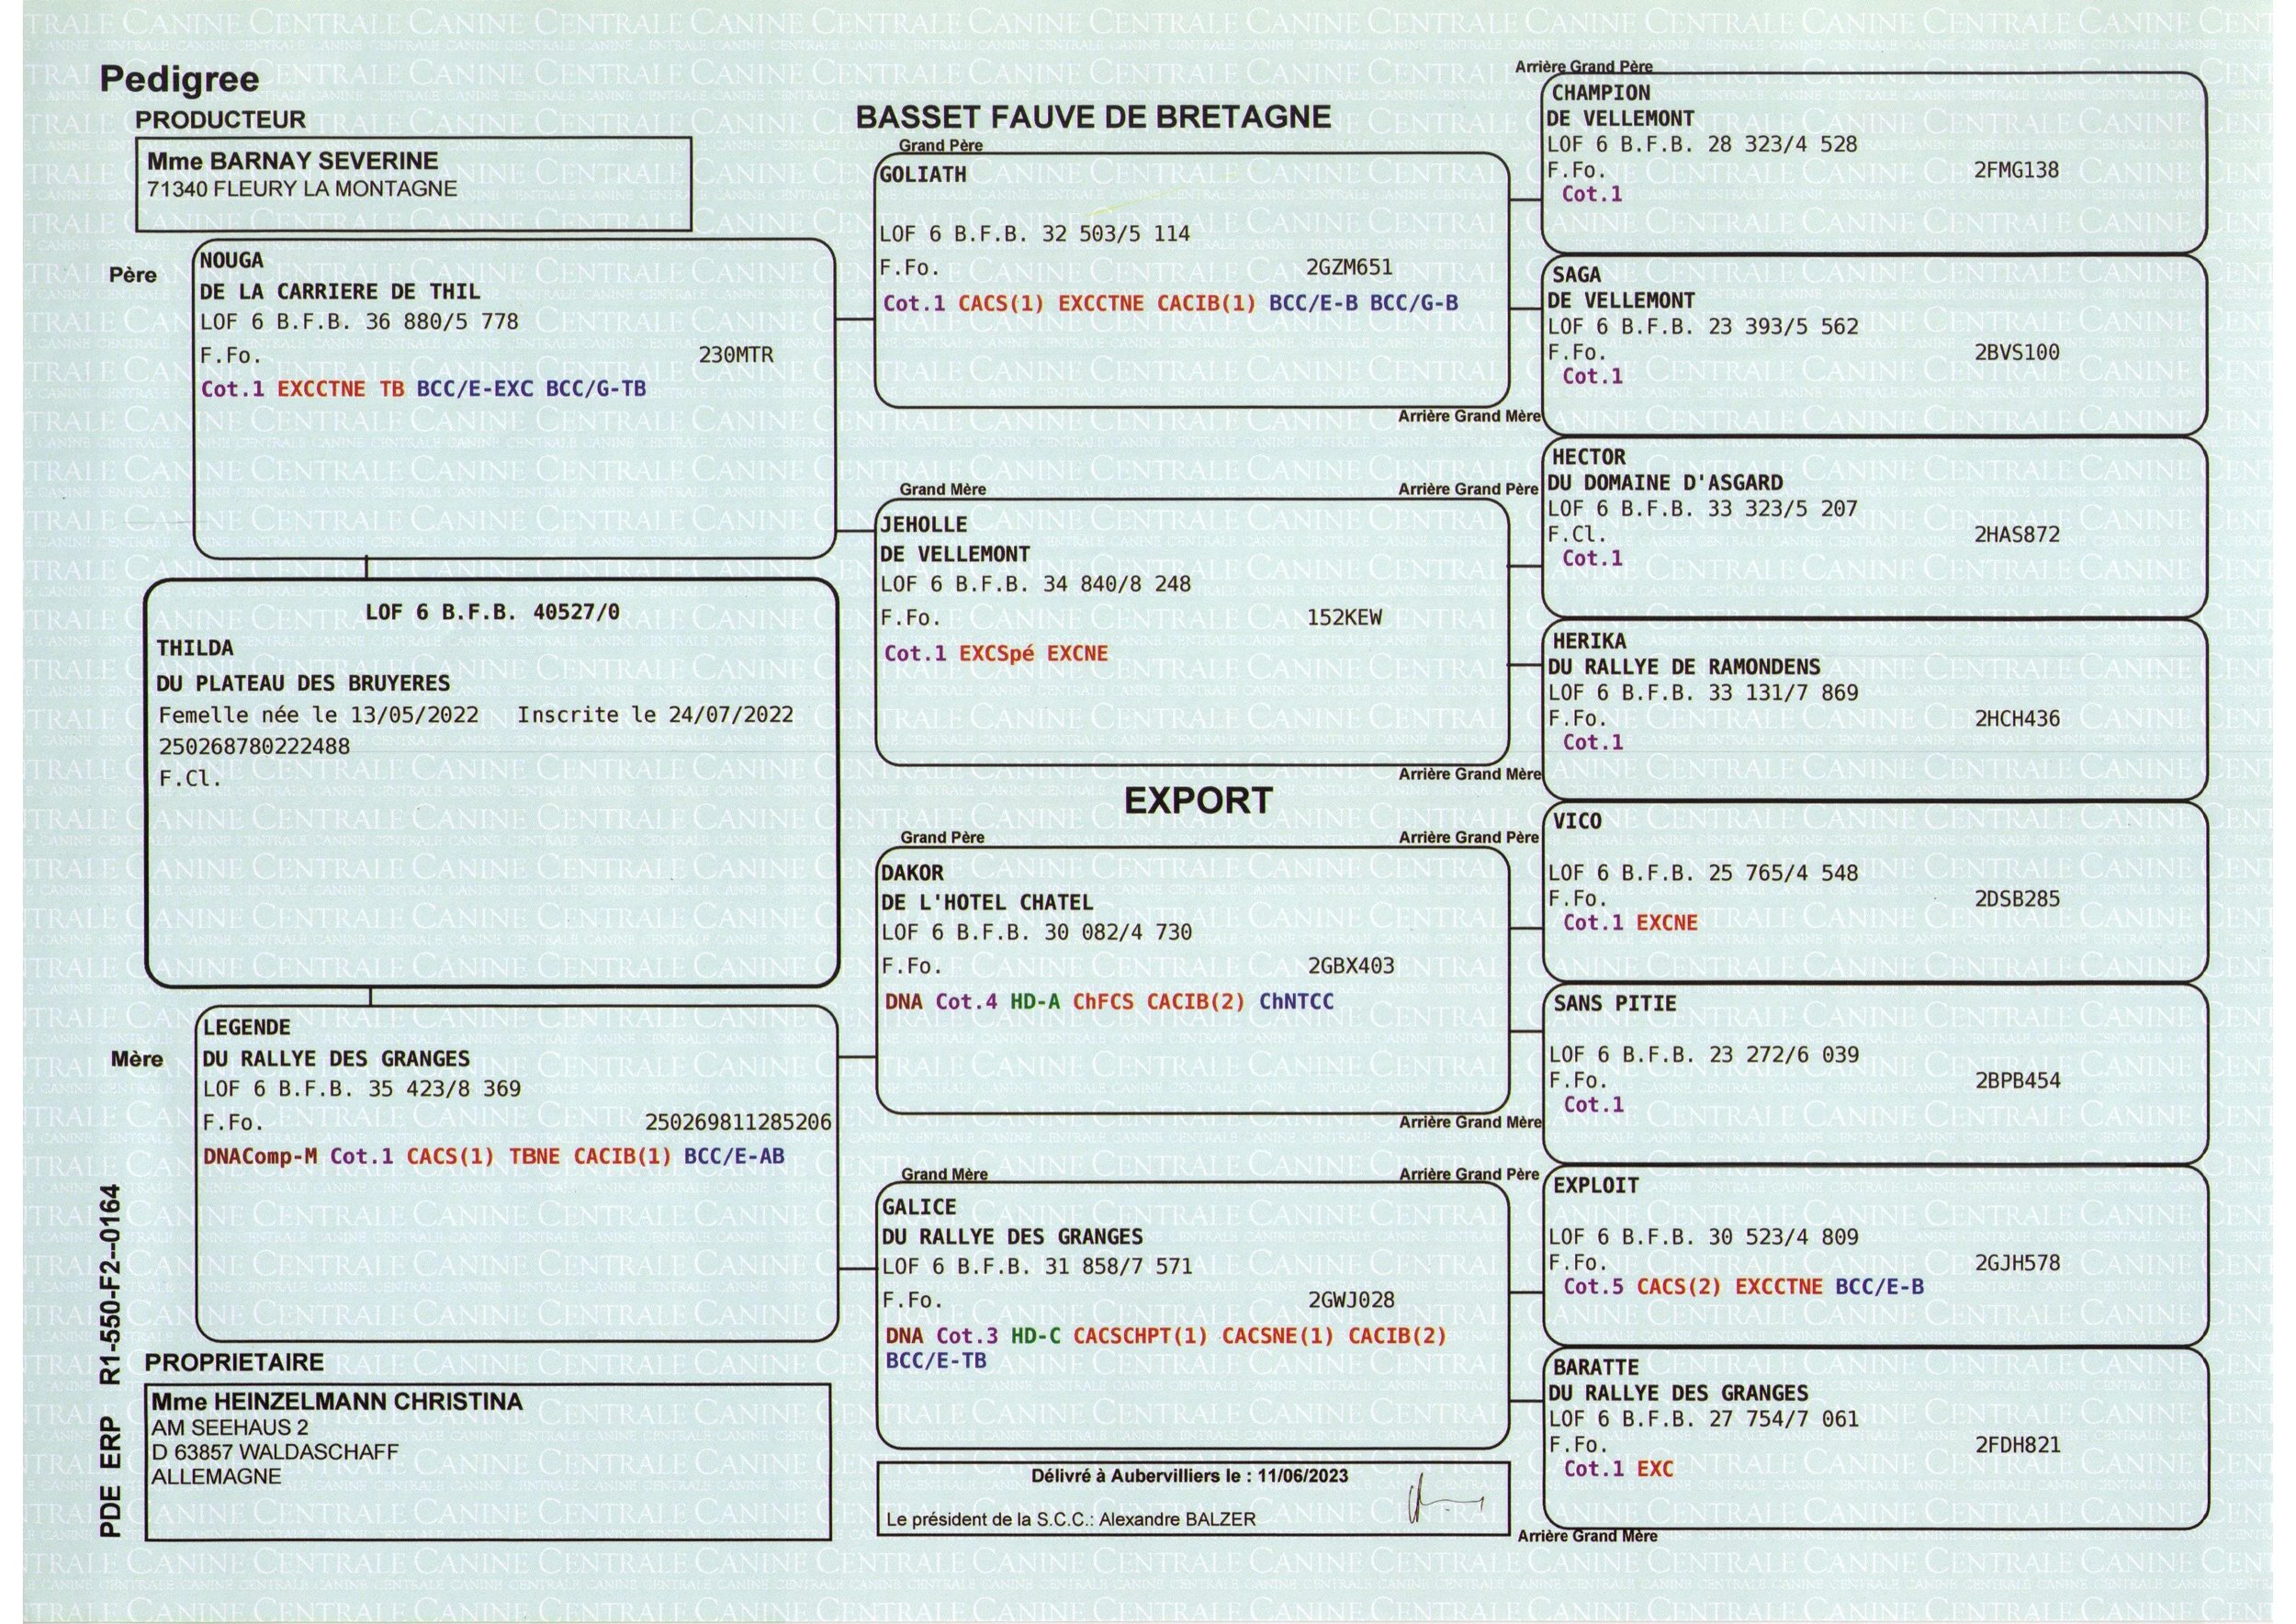 Pedigree
PRODUCTEUR
Mme BARNAY SEVERINE
71340 FLEURY LA MONTAGNE
BASSET FAUVE DE BRETAGNE
Père
NOUGA
DE LA CARRIERE DE THIL
LOF 6 B.F.B. 36 880/5 778
F.Fo. 230MTR
Cot.1 EXCCTNE TB BCC/E-EXC BCC/G-TB
LOF 6 B.F.B. 40527/0
THILDA
DU PLATEAU DES BRUYERES
Femelle née le 13/05/2022 Inscrite le 24/07/2022
250268780222488
F.Cl.
Mère
LEGENDE
DU RALLYE DES GRANGES
LOF 6 B.F.B. 35 423/8 369
F.Fo. 250269811285206
DNAComp-M Cot.1 CACS(1) TBNE CACIB(1) BCC/E-AB
PROPRIETAIRE
Mme HEINZELMANN CHRISTINA
AM SEEHAUS 2
D 63857 WALDASCHAFF
ALLEMAGNE
PDE ERP R1-550-F2--0164
Grand Père
GOLIATH
LOF 6 B.F.B. 32 503/5 114
F.Fo. 2GZM651
Cot.1 CACS(1) EXCCTNE CACIB(1) BCC/E-B BCC/G-B
Grand Mère
JEHOLLE
DE VELLEMONT
LOF 6 B.F.B. 34 840/8 248
F.Fo. 152KEW
Cot.1 EXCSpé EXCNE
EXPORT
Grand Père
DAKOR
DE L'HOTEL CHATEL
LOF 6 B.F.B. 30 082/4 730
F.Fo. 2GBX403
DNA Cot.4 HD-A ChFCS CACIB(2) ChNTCC
Grand Mère
GALICE
DU RALLYE DES GRANGES
LOF 6 B.F.B. 31 858/7 571
F.Fo. 2GWJ028
DNA Cot.3 HD-C CACSCHPT(1) CACSNE(1) CACIB(2)
BCC/E-TB
Délivré à Aubervilliers le : 11/06/2023
Le président de la S.C.C.: Alexandre BALZER
Arrière Grand Père
CHAMPION
DE VELLEMONT
LOF 6 B.F.B. 28 323/4 528
F.Fo. 2FMG138
Cot.1
Arrière Grand Mère
SAGA
DE VELLEMONT
LOF 6 B.F.B. 23 393/5 562
F.Fo. 2BVS100
Cot.1
Arrière Grand Père
HECTOR
DU DOMAINE D'ASGARD
LOF 6 B.F.B. 33 323/5 207
F.Cl. 2HAS872
Cot.1
Arrière Grand Mère
HERIKA
DU RALLYE DE RAMONDENS
LOF 6 B.F.B. 33 131/7 869
F.Fo. 2HCH436
Cot.1
Arrière Grand Père
VICO
LOF 6 B.F.B. 25 765/4 548
F.Fo. 2DSB285
Cot.1 EXCNE
Arrière Grand Mère
SANS PITIE
LOF 6 B.F.B. 23 272/6 039
F.Fo. 2BPB454
Cot.1
Arrière Grand Père
EXPLOIT
LOF 6 B.F.B. 30 523/4 809
F.Fo. 2GJH578
Cot.5 CACS(2) EXCCTNE BCC/E-B
BARATTE
DU RALLYE DES GRANGES
LOF 6 B.F.B. 27 754/7 061
F.Fo. 2FDH821
Cot.1 EXC
Arrière Grand Mère